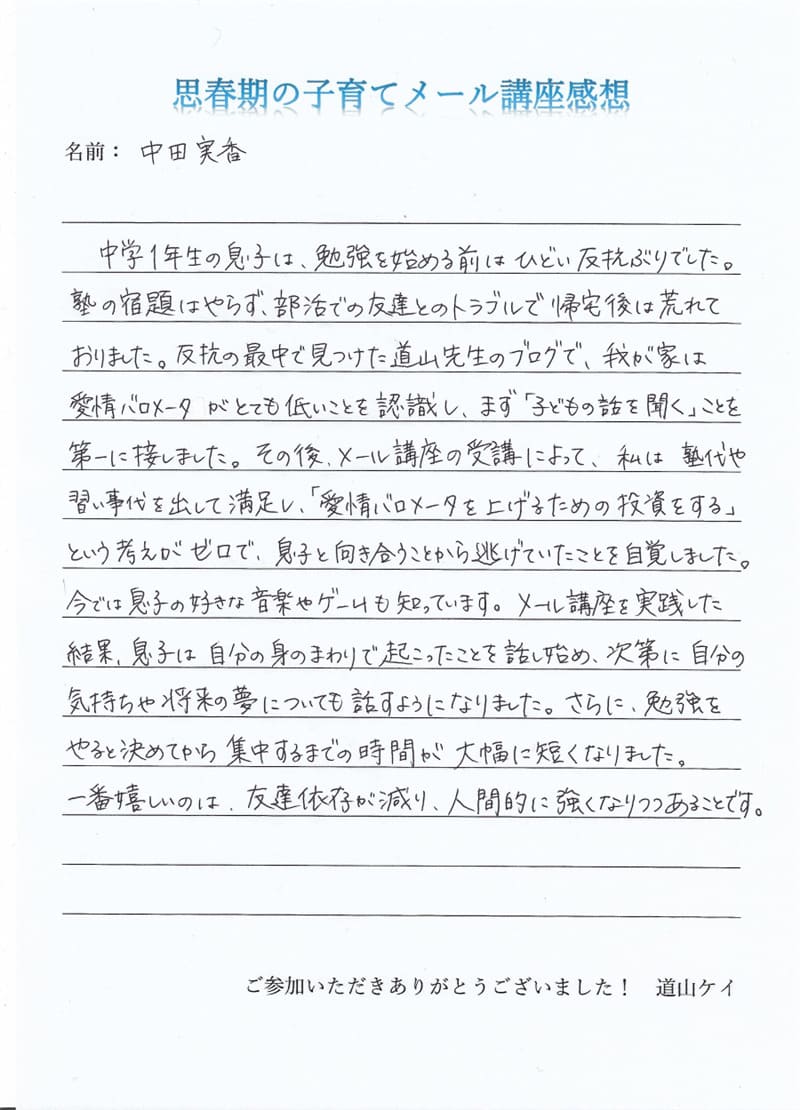 思春期の子育てメール講座感想
名前： 中田実香
中学1年生の息子は、勉強を始める前はひどい反抗ぶりでした。
塾の宿題はやらず、部活での友達とのトラブルで帰宅後は荒れて
おりました。反抗の最中で見つけた道山先生のブログで、我が家は
愛情バロメータがとても低いことを認識し、まず「子どもの話を聞く」ことを
第一に接しました。その後、メール講座の受講によって、私は塾代や
習い事代を出して満足し、「愛情バロメータを上げるための投資をする」
という考えがゼロで、息子と向き合うことから逃げていたことを自覚しました。
今では息子の好きな音楽やゲームも知っています。メール講座を実践した
結果、息子は自分の身のまわりで起こったことを話し始め、次第に自分の
気持ちや将来の夢についても話すようになりました。さらに、勉強を
やると決めてから集中するまでの時間が大幅に短くなりました。
一番嬉しいのは、友達依存が減り、人間的に強くなりつつあることです。
ご参加いただきありがとうございました！ 道山ケイ